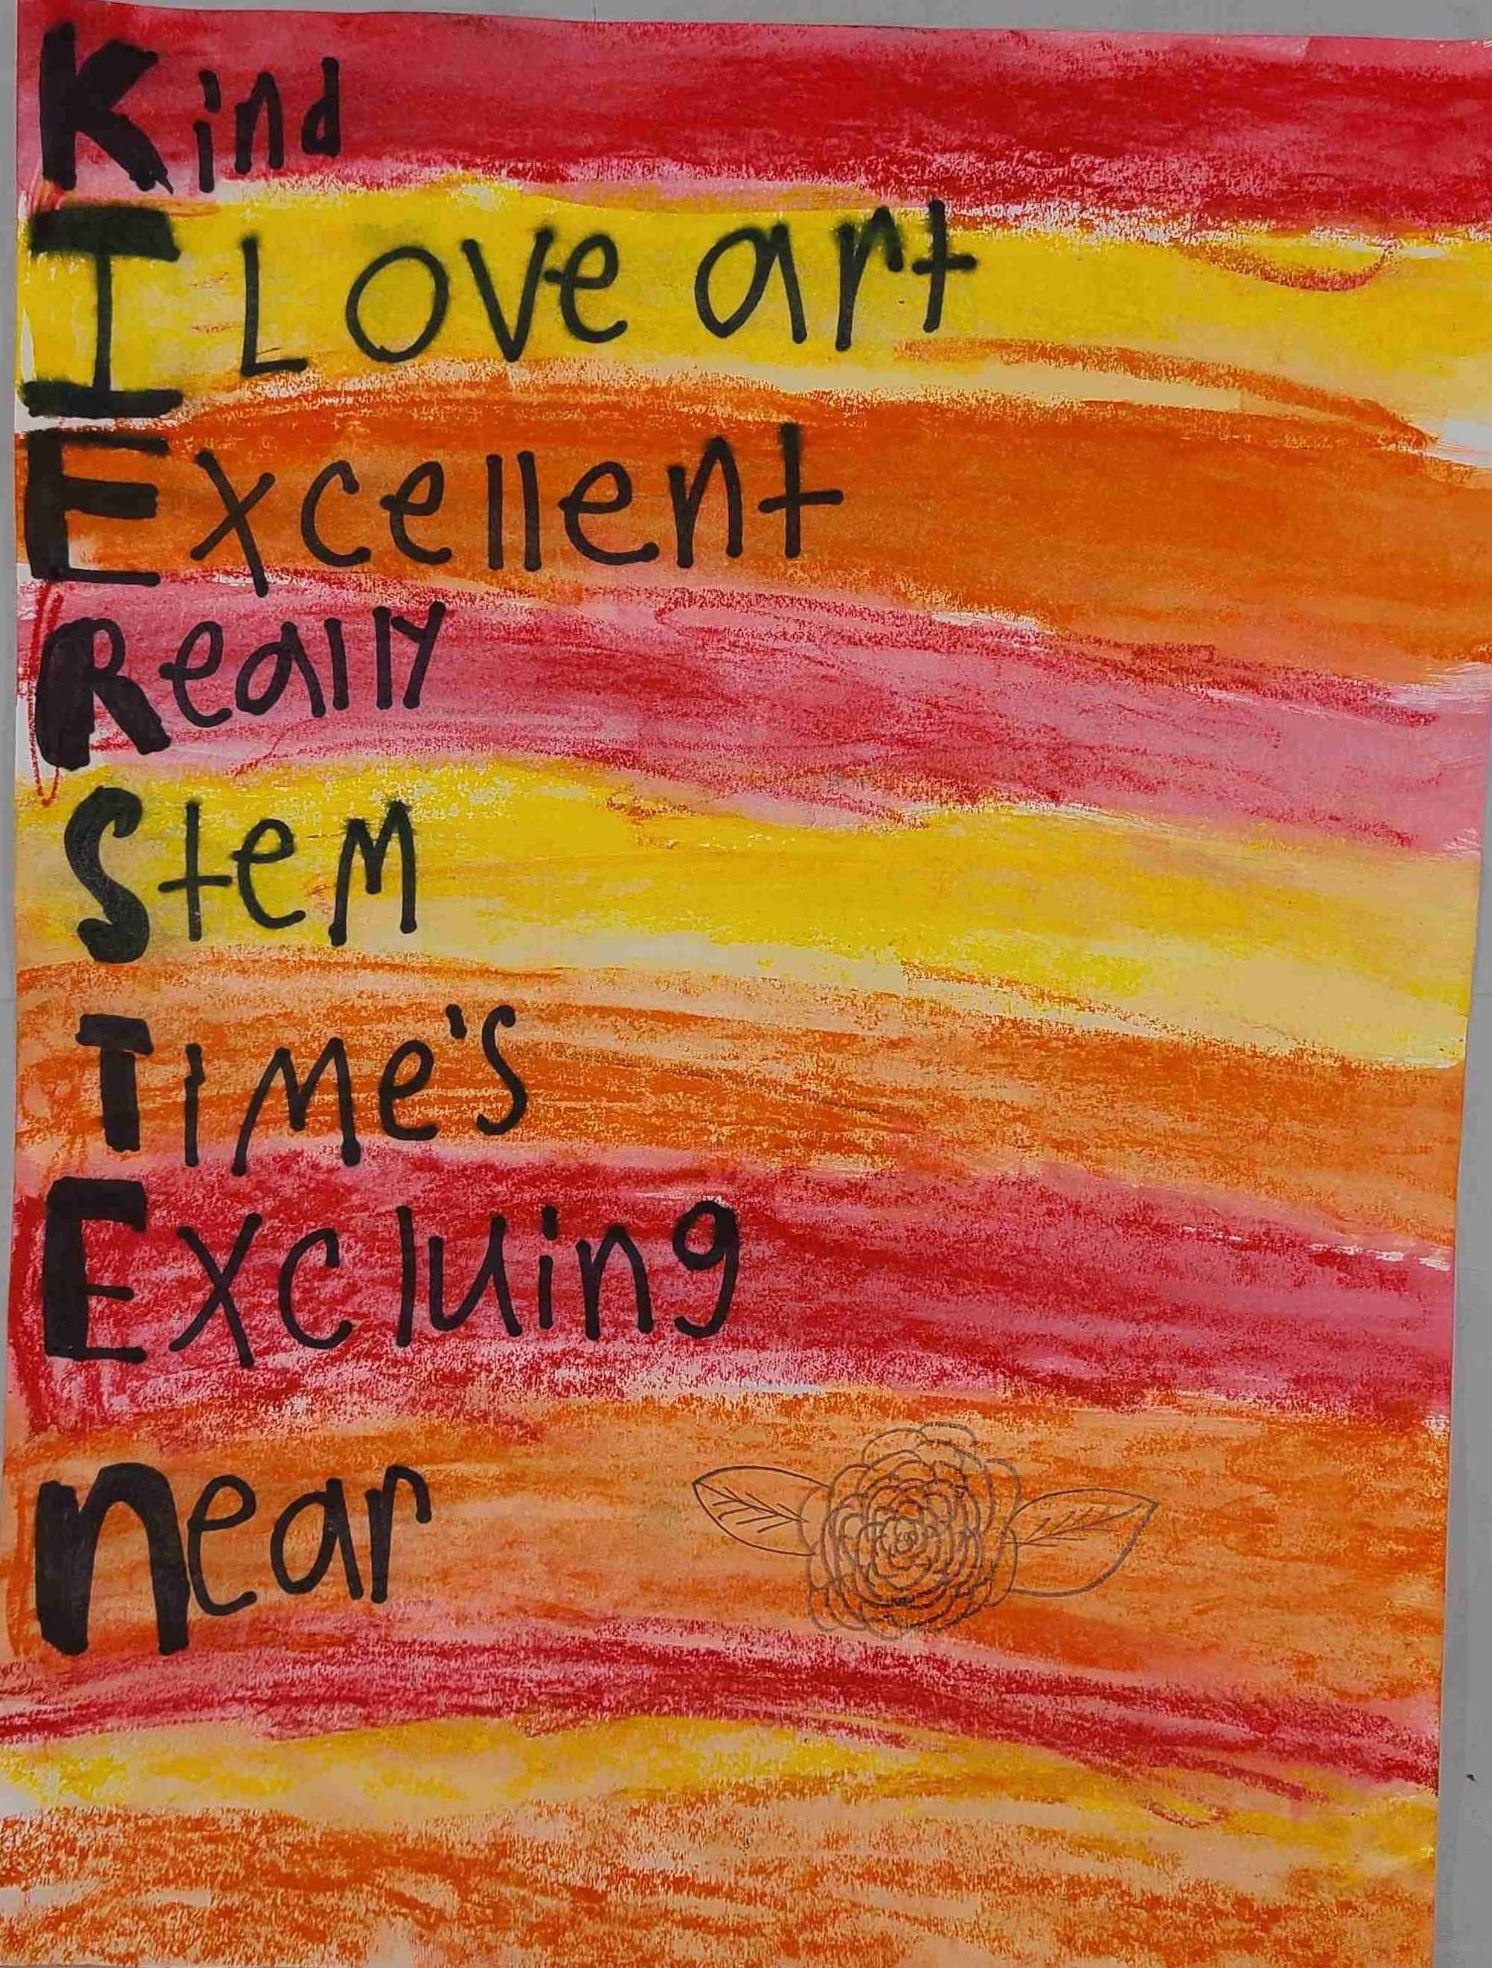 Kind
I Love art
Excellent
Really
Stem
Time's
Excluing
near